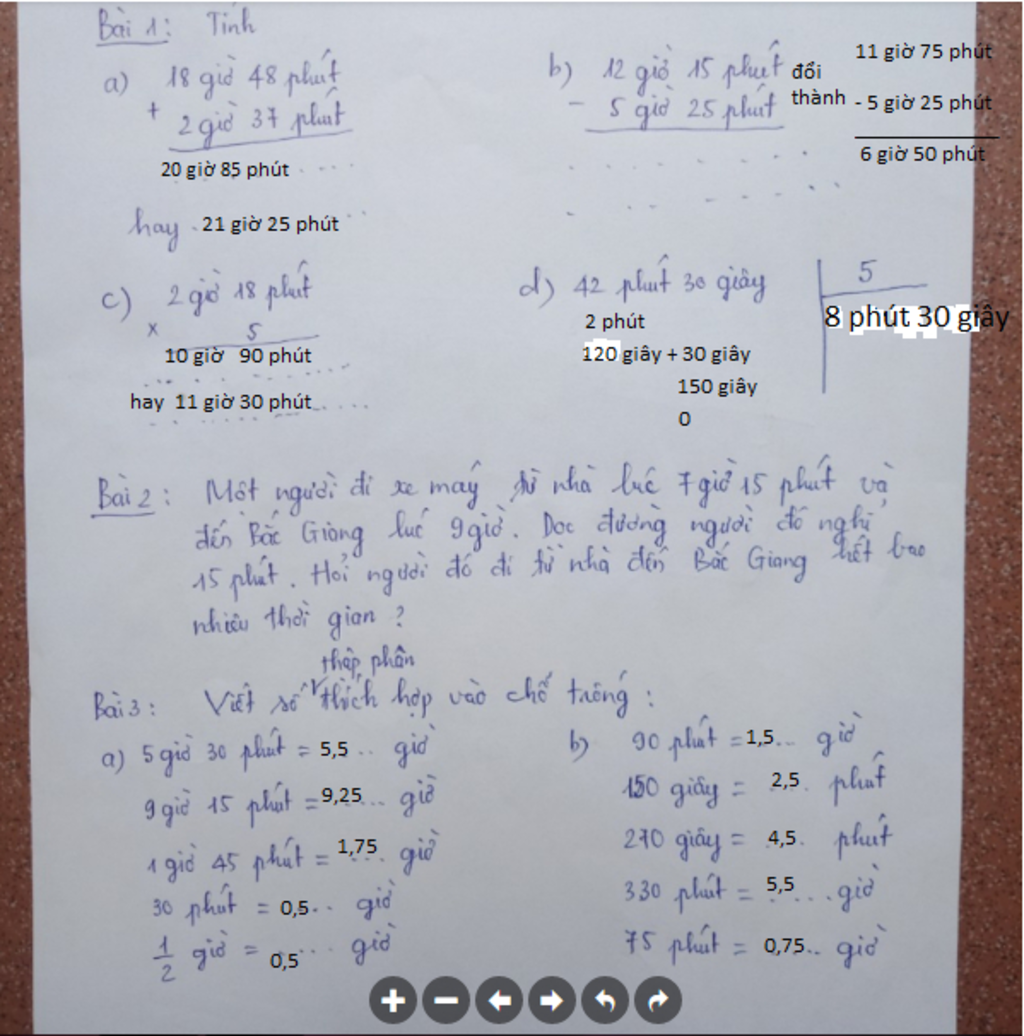 Bài 1: Tính
a) 18 giờ 48 phút
+ 2 giờ 37 phút
20 giờ 85 phút
hay 21 giờ 25 phút
b) 12 giờ 15 phút đổi thành 11 giờ 75 phút
- 5 giờ 25 phút - 5 giờ 25 phút
6 giờ 50 phút
c) 2 giờ 18 phút
x 5
10 giờ 90 phút
hay 11 giờ 30 phút
d) 42 phút 30 giây 5
2 phút 8 phút 30 giây
120 giây + 30 giây
150 giây
0
Bài 2: Một người đi xe máy từ nhà lúc 7 giờ 15 phút và
đến Bắc Giang lúc 9 giờ. Dọc đường người đó nghỉ
15 phút. Hỏi người đó đi từ nhà đến Bắc Giang hết bao
nhiêu thời gian?
thập phân
Bài 3: Viết số thích hợp vào chỗ trống:
a) 5 giờ 30 phút = 5,5 .. giờ
9 giờ 15 phút = 9,25... giờ
1 giờ 45 phút = 1,75. giờ
30 phút = 0,5.. giờ
1/2 giờ = 0,5... giờ
b) 90 phút = 1,5... giờ
150 giây = 2,5. phút
270 giây = 4,5. phút
330 phút = 5,5... giờ
75 phút = 0,75.. giờ